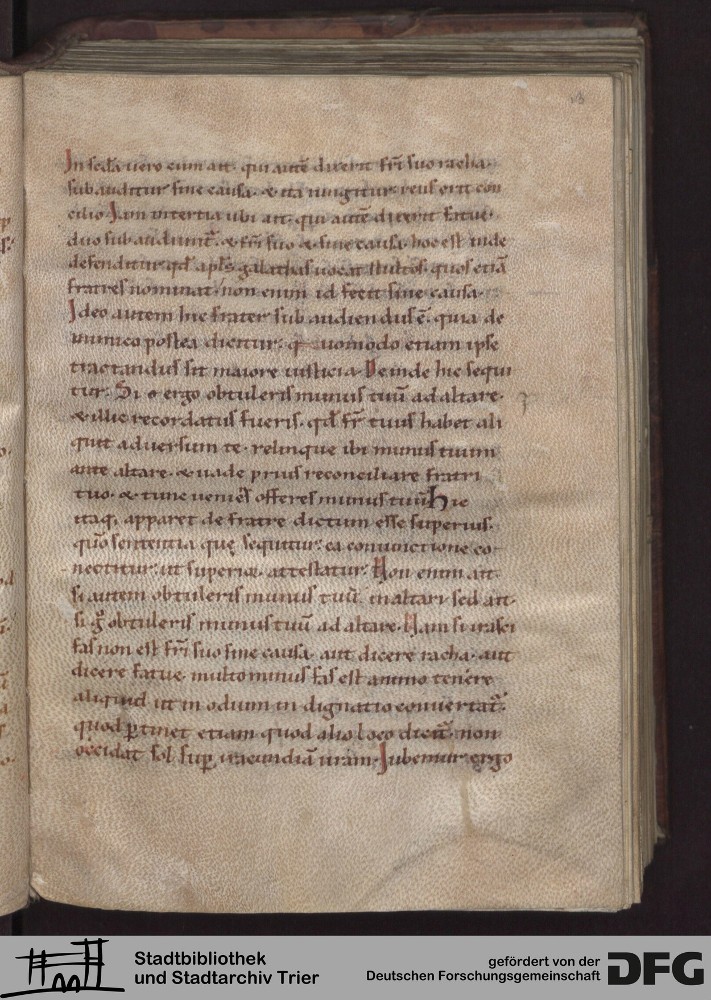 In scd̄a uero cum ait. qui autē dixerit fr̄i suo racha.
subauditur sine causa. & ita iungitur. reus erit con
cilio. Iam in tertia ubi ait. qui autē dixerit fatue.
duo subaudiunt̄. & fr̄i suo & sine causa. hoc est inde
defenditur qd̄ apl̄s galathas uocat stultos. quos etiā
fratres nominat. non enim id fecit sine causa.
Ideo autem hic frater subaudiendus ē. quia de
inimico postea dicitur. quomodo etiam ipse
tractandus sit maiore iusticia. Deinde hic sequi
tur. Si ergo obtuleris munus tuū ad altare.
& illic recordatus fueris. qd̄ fr̄ tuus habet ali
quit aduersum te. relinque ibi munus tuum
ante altare. & uade prius reconciliare fratri
tuo. & tunc ueniēs offeres munus tuū. Hic
itaq; apparet de fratre dictum esse superius.
quō sententia quę sequitur. ea coniunctione co
nectitur. ut superiori attestatur. Non enim ait.
si autem obtuleris munus tuū in altari sed ait.
si gͦ obtuleris munus tuū ad altare. Nam si irasci
fas non est fr̄i suo sine causa. aut dicere racha. aut
dicere fatue. multo minus fas est animo tenere
aliquid ut in odium indignatio conuertat̄.
quod ꝑtinet etiam quod alio loco dicit̄. non
occidat sol suꝑ iracundiā uram. Iubemur ergo
Stadtbibliothek
und Stadtarchiv Trier
gefördert von der
Deutschen Forschungsgemeinschaft
DFG